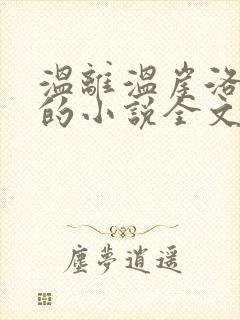 溫離溫崖洛
的小說全文
塵夢逍遥